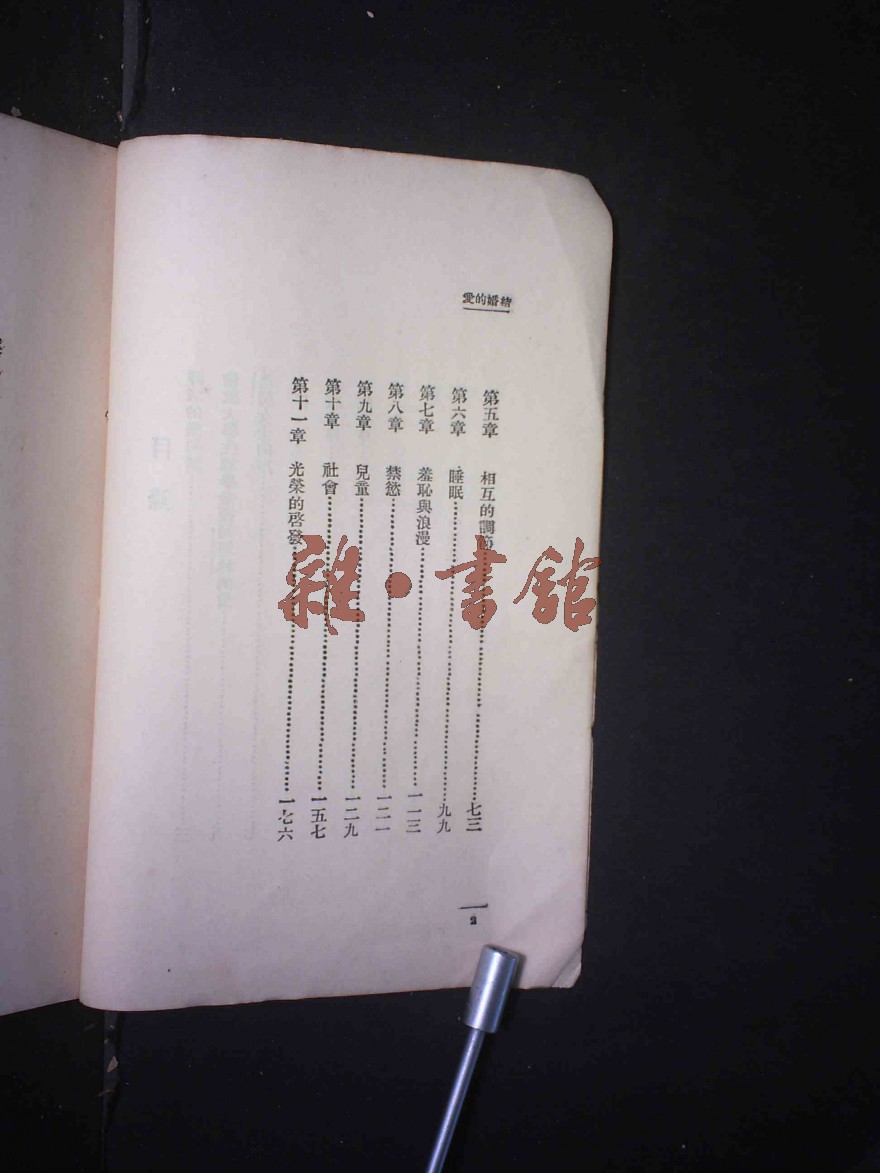 結婚的愛
第五章 相互的調節 七三
第六章 睡眠 九九
第七章 羞恥與浪漫 一一三
第八章 禁慾 一二一
第九章 兒童 一二九
第十章 社會 一五七
第十一章 光榮的啓發 一七六
2
雜·書館